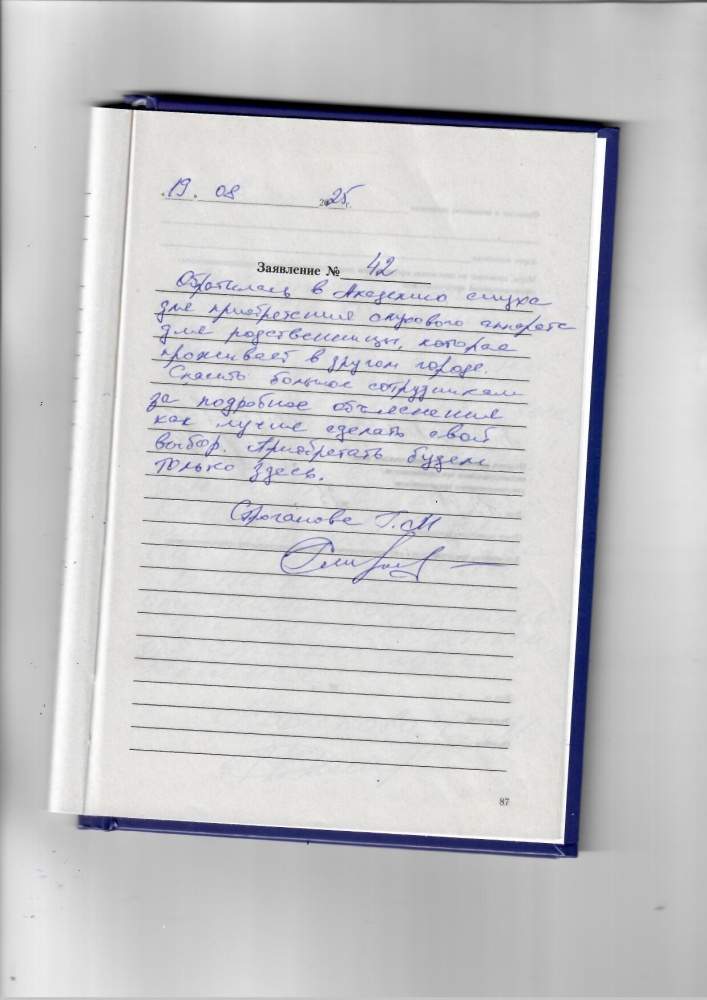 19. 08 2025г.
Заявление № 42
Обратилась в Академию слуха
для приобретения слухового аппарата
для родственницы, которая
проживает в другом городе.
Спасибо большое сотрудникам
за подробное объяснение
как лучше сделать свой
выбор. Приобретать будем
только здесь.
Строганова Г.М
87